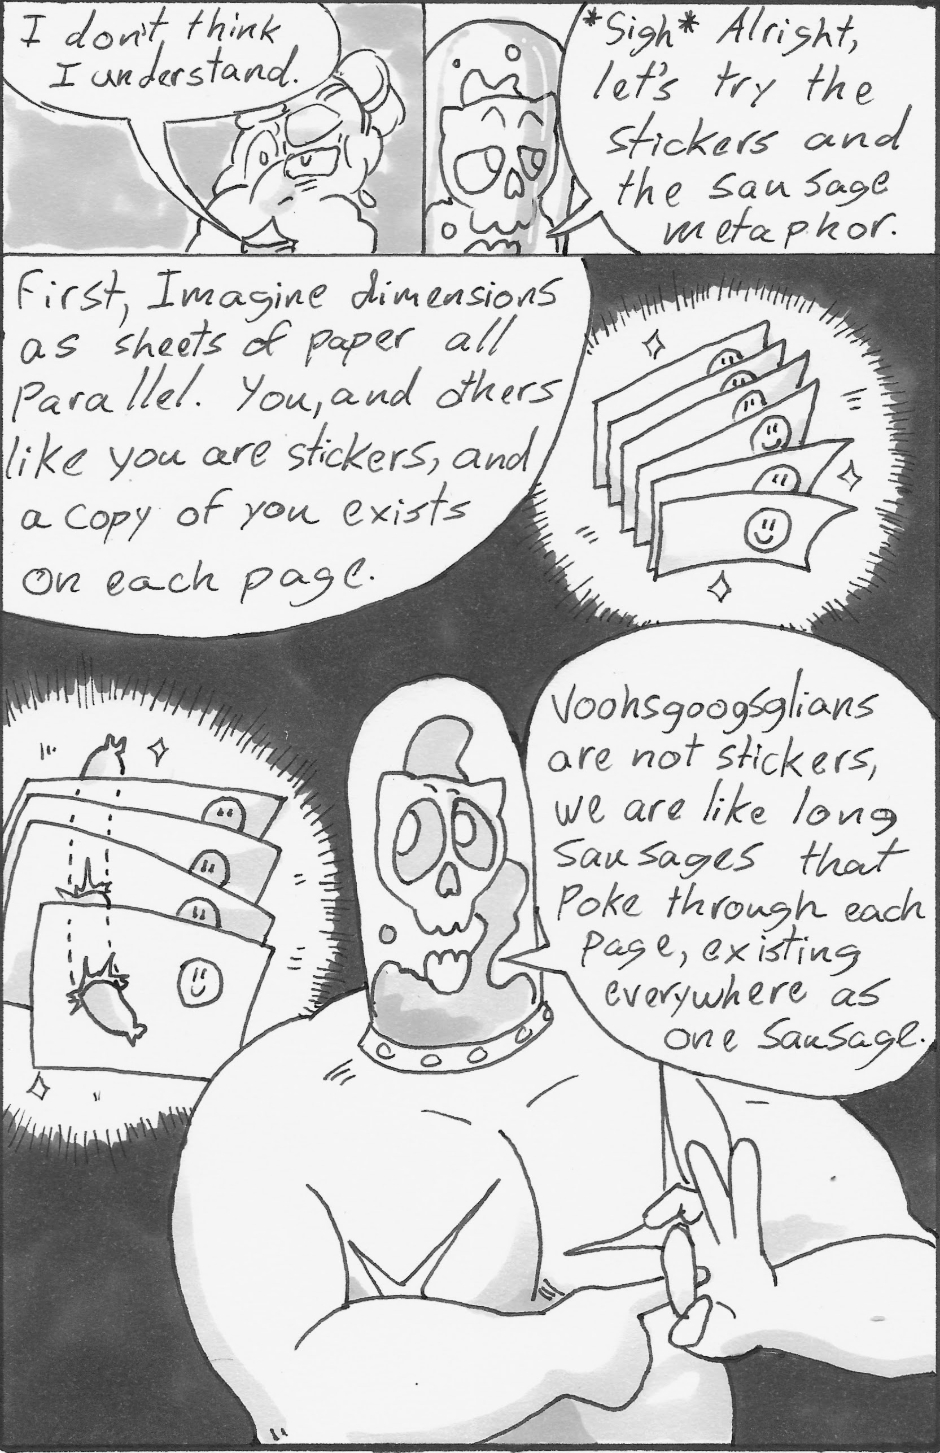 I don't think
I understand.
*Sigh* Alright,
let's try the
stickers and
the sausage
metaphor.
First, Imagine dimensions
as sheets of paper all
Parallel. You, and others
like you are stickers, and
a copy of you exists
on each page.
Voohsgoogsglians
are not stickers,
we are like long
Sausages that
Poke through each
page, existing
everywhere as
one sausage.